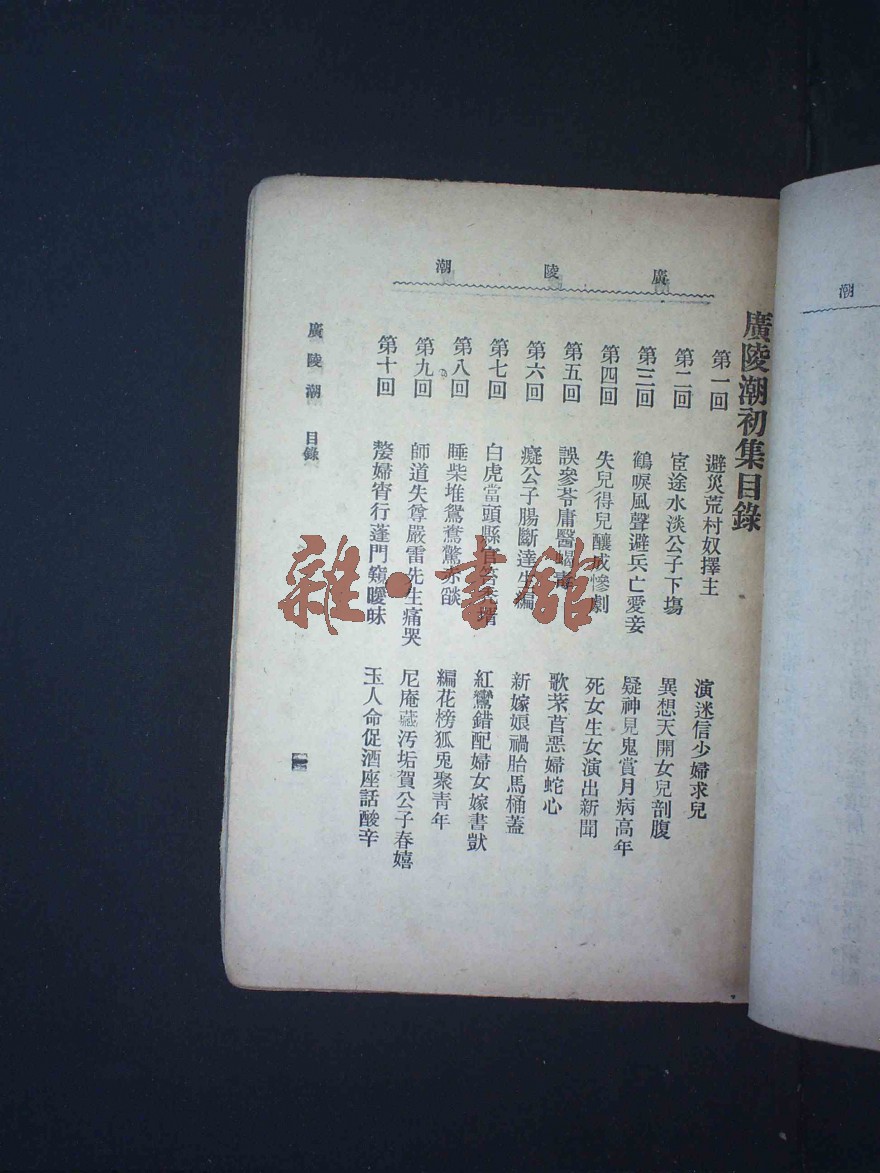 潮
廣陵潮
廣陵潮初集目錄
第一回 避災荒村奴擇主 演迷信少婦求兒
第二回 宦途水淡公子下場 異想天開女兒剖腹
第三回 鶴唳風聲避兵亡愛妾 疑神見鬼賞月病高年
第四回 失兒得兒釀成慘劇 死女生女演出新聞
第五回 誤參苓庸醫蝎毒 歌芣苢惡婦蛇心
第六回 癡公子腸斷達生編 新嫁娘禍胎馬桶蓋
第七回 白虎當頭縣官笞 紅鸞錯配婦女嫁書獃
第八回 睡柴堆鴛鴦驚赤燄 編花榜狐兎聚青年
第九回 師道失尊嚴雷先生痛哭 尼庵藏汚垢賀公子春嬉
第十回 嫠婦宵行蓬門窺曖昧 玉人命促酒座話酸辛
廣陵潮 目錄
雜·書館